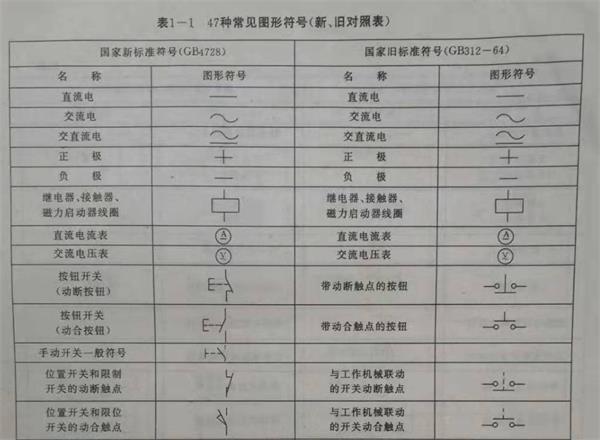 表1-1 47种常见图形符号(新、旧对照表)
国家新标准符号(GB4728) 国家旧标准符号(GB312-64)
名 称 图形符号 名 称 图形符号
直流电 直流电
交流电 交流电
交直流电 交直流电
正 极 正 极
负 极 负 极
继电器、接触器、 继电器、接触器、
磁力启动器线圈 磁力启动器线圈
直流电流表 A 直流电流表 A
交流电压表 V 交流电压表 V
按钮开关
(动断按钮) 带动断触点的按钮
按钮开关
(动合按钮) 带动合触点的按钮
手动开关一般符号
位置开关和限制 与工作机械联动
开关的动断触点 的开关动断触点
位置开关和限位 与工作机械联动
开关的动合触点 的开关动合触点